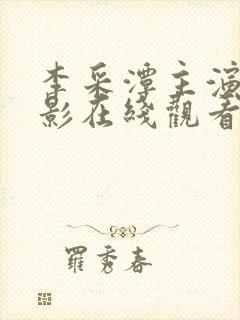 李采潭主演
影在綫觀看
羅秀春